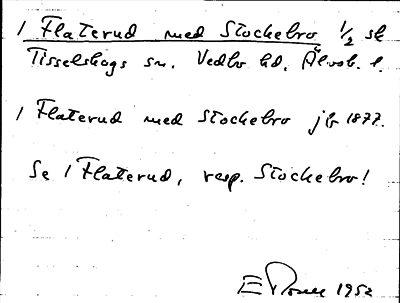 1 Flaterud med Stockebro 1/2 sk
Tisselskogs sn. Vedbo hd. Älvsb. l.
1 Flaterud med Stockebro jb 1877.
Se 1 Flaterud, resp. Stockebro!
E 1952